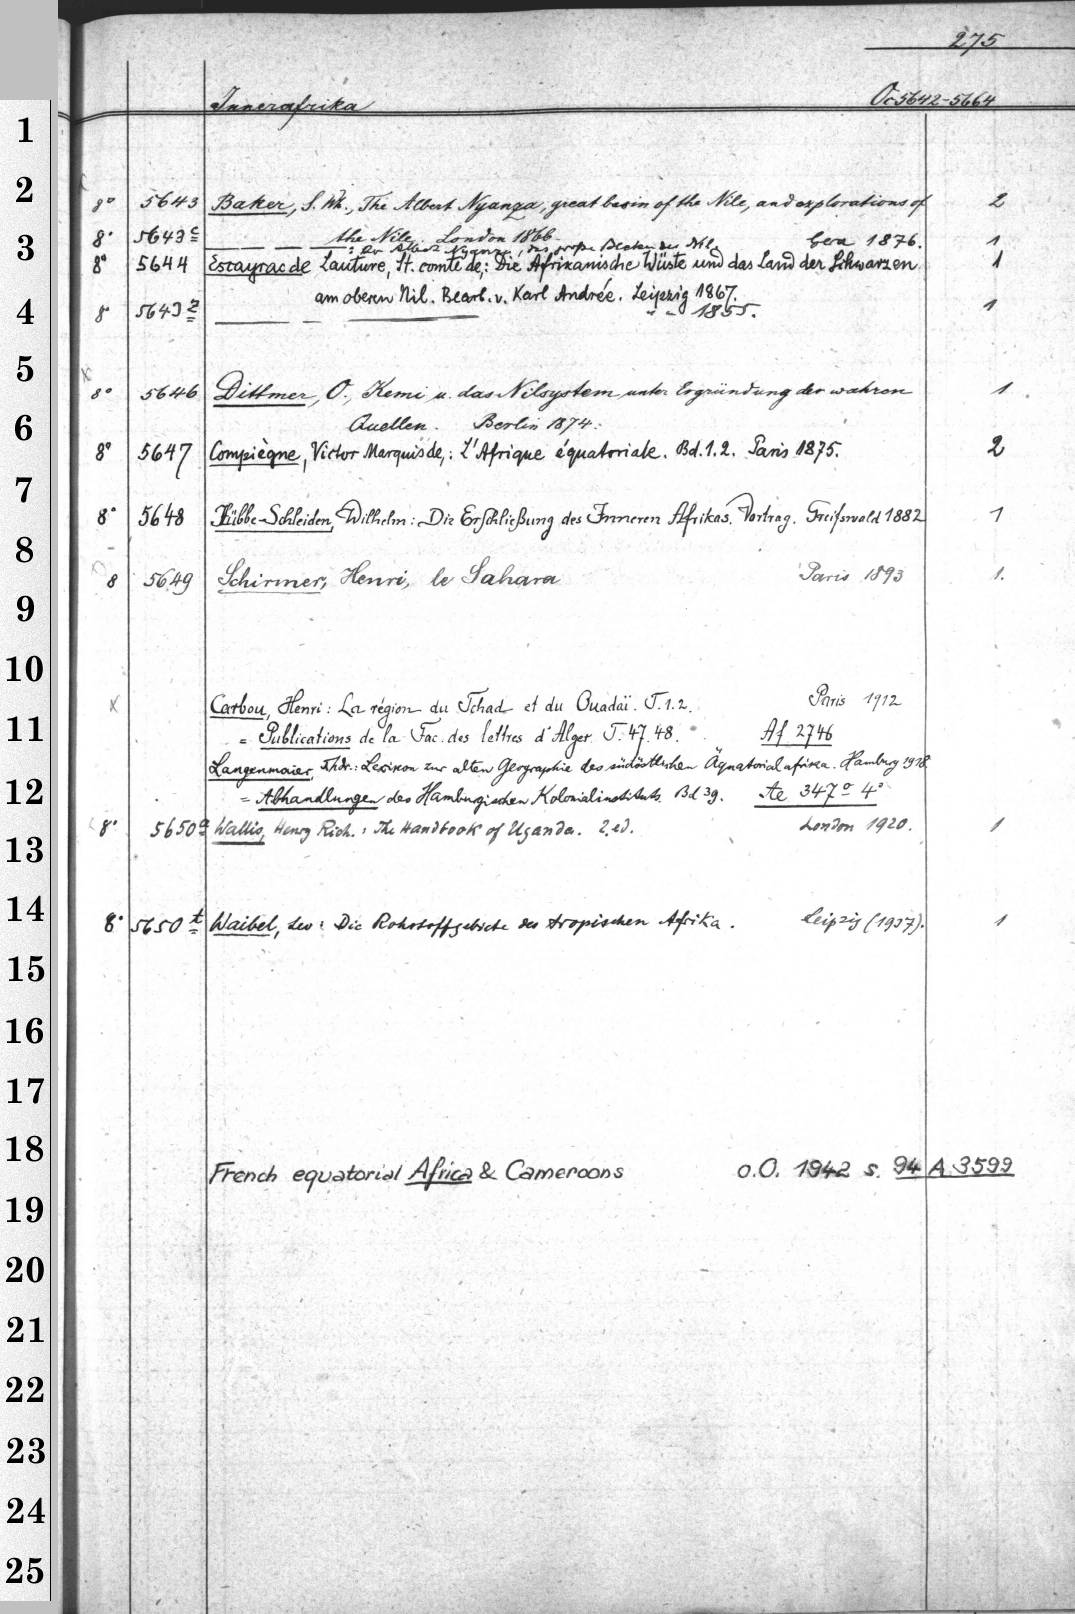 275
Innerafrika Oc 5642-5664
1
2
8° 5643 Baker, S. Wh., The Albert Nyanza, great basin of the Nile, and explorations of 2
the Nile. London 1866.
3
8° 5643 c — — — : Der Albert Nyanza, das große Becken des Nil. Gera 1876. 1
8° 5644 Escayrac de Lauture, St. comte de,: Die Afrikanische Wüste und das Land der Schwarzen 1
am obern Nil. Bearb. v. Karl Andrée. Leipzig 1867.
4
8° 5643 z — — — " " 1855. 1
5
x 8° 5646 Dittmer, O., Kemi u. das Nilsystem unter Ergründung der wahren 1
Quellen. Berlin 1874.
6
8° 5647 Compiègne, Victor Marquis de,: L'Afrique équatoriale. Bd. 1.2. Paris 1875. 2
7
8° 5648 Hübbe-Schleiden, Wilhelm: Die Erschließung des Inneren Afrikas. Vortrag. Greifswald 1882 1
8
8 5649 Schirmer, Henri, le Sahara Paris 1893 1.
9
10
x Carbou, Henri: La région du Tchad et du Ouadaï. T. 1.2. Paris 1912
11
= Publications de la Fac. des lettres d'Alger T. 47.48. Af 2746
Langenmaier, Thdr.: Lexikon zur alten Geographie des südöstlichen Äquatorialafrika. Hamburg 1918.
12
= Abhandlungen des Hamburgischen Kolonialinstituts Bd 39. Ae 347° 4°
8° 5650 a Wallis, Henry Rich.: The Handbook of Uganda. 2. ed. London 1920. 1
13
14
8° 5650 t Waibel, Leo: Die Rohstoffgebiete des tropischen Afrika. Leipzig (1937). 1
15
16
17
18
French equatorial Africa & Cameroons o.O. 1942 s. 94 A 3599
19
20
21
22
23
24
25